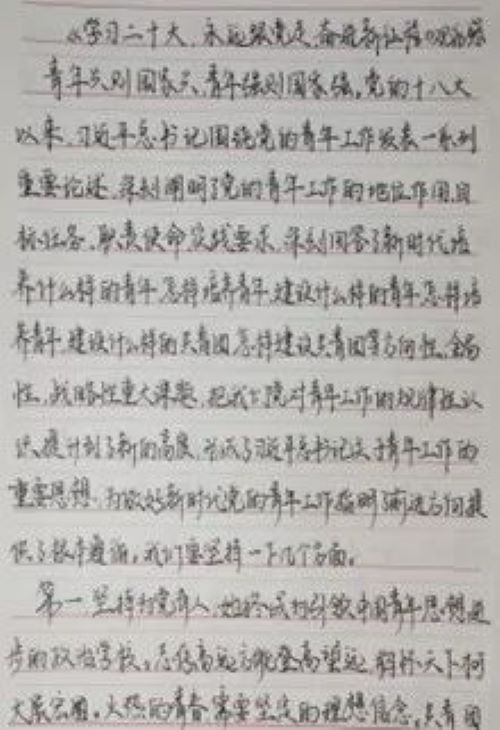 《学习二十大、永远跟党走、奋进新征程》观后感
青年兴则国家兴,青年强则国家强。党的十八大
以来,习近平总书记围绕党的青年工作发表一系列
重要论述,深刻阐明了党的青年工作的地位作用、目
标任务、职责使命、实践要求,深刻回答了新时代培
养什么样的青年、怎样培养青年,建设什么样的青年、怎样培
养青年,建设什么样的共青团、怎样建设共青团等方向性、全局
性、战略性重大课题,把我们党对青年工作的规律性认
识提升到了新的高度,形成了习近平总书记关于青年工作的
重要思想,为做好新时代党的青年工作指明了前进方向提
供了根本遵循。我们要坚持一下几个方面。
第一,坚持为党育人,始终成为引领中国青年思想进
步的政治学校。志存高远方能登高望远,胸怀天下可
大展宏图。火热的青春,需要坚定的理想信念。共青团